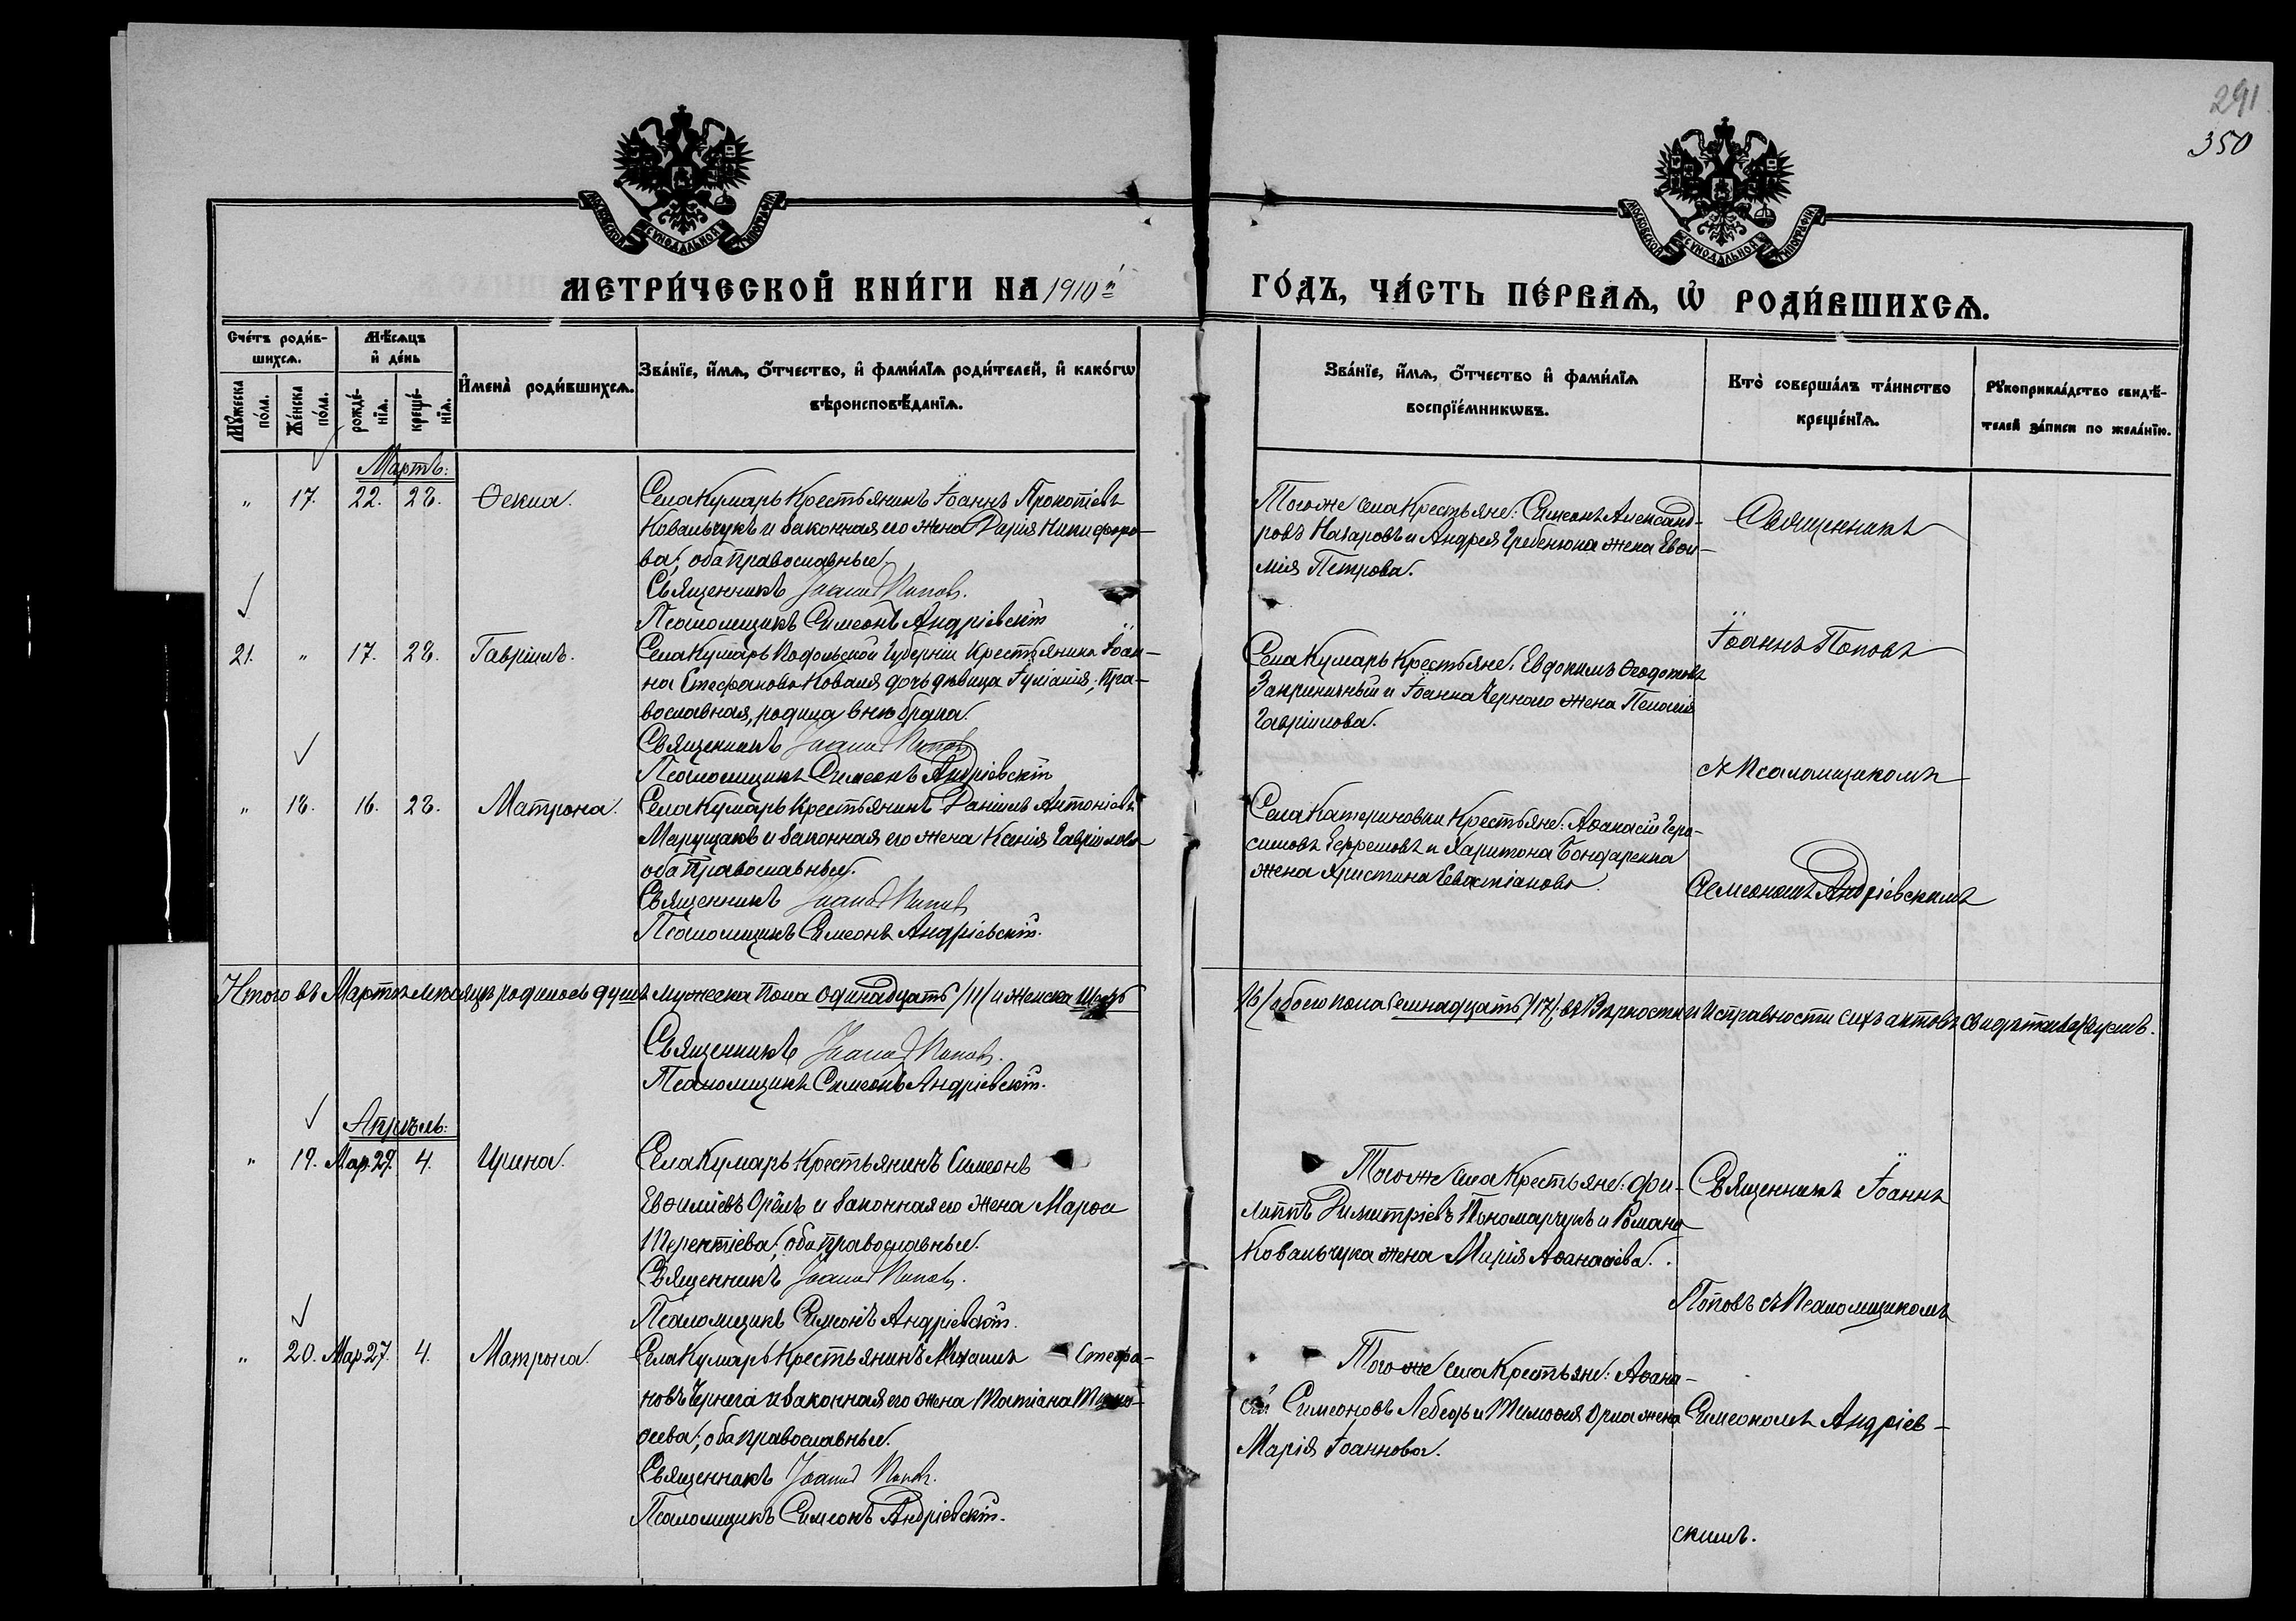 291
350
МОСКОВСКОЙ СѴНОДАЛЬНОЙ ТИПОГРАФІИ
МОСКОВСКОЙ СѴНОДАЛЬНОЙ ТИПОГРАФІИ
МЕТРИ́ЧЕСКОЙ КНИ́ГИ НА 1910й
ГО́ДЪ, ЧА́СТЬ ПЕ́РВАѦ, Ѡ РОДИ́ВШИХСѦ.
Сче́тъ роди́в-
шихсѧ.
Мѣ́сѧцъ
и҆ де́нь
Мꙋ́жеска
по́ла.
Же́нска
по́ла.
рожде́-
нїѧ.
креще́-
нїѧ.
И҆мена̀ роди́вшихсѧ.
Зва́нїе, и҆́мѧ, ѻ҆́тчество, и҆ фами́лїѧ роди́телей, и҆ како́гѡ
вѣроисповѣ́данїѧ.
Зва́нїе, и҆́мѧ, ѻ҆́тчество и҆ фами́лїѧ
воспрїе́мникѡвъ.
Кто̀ соверша́лъ та́инство
креще́нїѧ.
Рꙋкоприкла́дство свидѣ́-
телей за́писи по жела́нїю.
Мартъ:
" 17. 22. 28. Ѳекла. Села Кумарь Крестьянинъ Іоаннъ Прокопіевъ
Ковальчукъ и законная его жена Дарія Никифоро-
ва; оба православные.
Священникъ Іоаннъ Поповъ.
Псаломщикъ Симеонъ Андріевскій
Того же села Крестьяне: Симеонъ Александ-
ровъ Назаровъ и Андрея Гребенюка жена Евѳи-
мія Петрова.
Священникъ
21. " 17. 28. Гавріилъ. Села Кумарь Подольской Губерніи Крестьянина Іоан-
на Стефанова Коваля дочь дѣвица Іуліанія; пра-
вославная, родила внѣ брака.
Священникъ Іоаннъ Поповъ
Псаломщикъ Симеонъ Андріевскій
Села Кумарь Крестьяне: Евдокимъ Ѳеодотовъ
Закриничный и Іоанна Чернаго жена Пелагія
Гавріилова.
Іоаннъ Поповъ
съ Псаломщикомъ
" 18. 16. 28. Матрона. Села Кумарь Крестьянинъ Даніилъ Антоніевъ
Марущакъ и законная его жена Ксенія Гавріилова
оба Православные.
Священникъ Іоаннъ Поповъ
Псаломщикъ Симеонъ Андріевскій.
Села Катериновки Крестьяне: Аѳанасій Гера-
симовъ и Харитона Бондаренка
жена Христина Севастіанова.
Симеономъ Андріевскимъ
Итого въ Мартѣ мѣсяцѣ родилось душъ мужеска пола одинадцать /11/ и женска шесть
/6/ обоего пола семнадцать /17/. въ Вѣрности и Исправности сихъ актовъ свидѣтельствуемъ.
Священникъ Іоаннъ Поповъ.
Псаломщикъ Симеонъ Андріевскій.
Апрѣль:
" 19. Мар. 29. 4. Ирина. Села Кумарь Крестьянинъ Симеонъ
Евѳиміевъ Орелъ и законная его жена Марѳа
Терентіева; оба православные.
Священникъ Іоаннъ Поповъ.
Псаломщикъ Симеонъ Андріевскій.
Того же села Крестьяне: Фи-
липпъ Димитріевъ Пономарчукъ и Романа
Ковальчука жена Марія Аѳанасіева.
Священникъ Іоаннъ
Поповъ съ Псаломщикомъ
" 20. Мар. 27. 4. Матрона. Села Кумарь Крестьянинъ Михаилъ Стефа-
новъ Чернега и законная его жена Татіана Тимо-
ѳеева; оба православные.
Священникъ Іоаннъ Поповъ.
Псаломщикъ Симеонъ Андріевскій.
Того же села Крестьяне: Аѳана-
сій Симеоновъ Лебедь и Тимоѳея Орла жена
Марія Іоаннова.
Симеономъ Андріев-
скимъ.